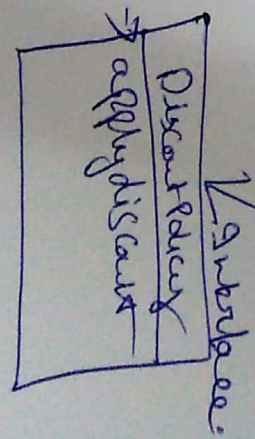 Interface.
DiscountPolicy
applydiscount